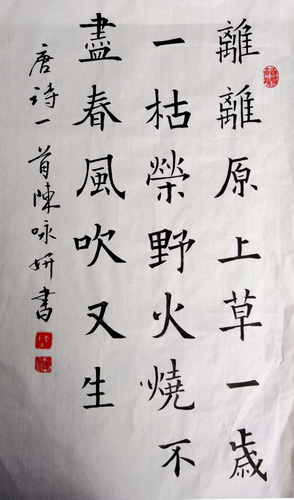 離離原上草一歲
一枯榮野火燒不
盡春風吹又生
唐詩一首陳咏妍書